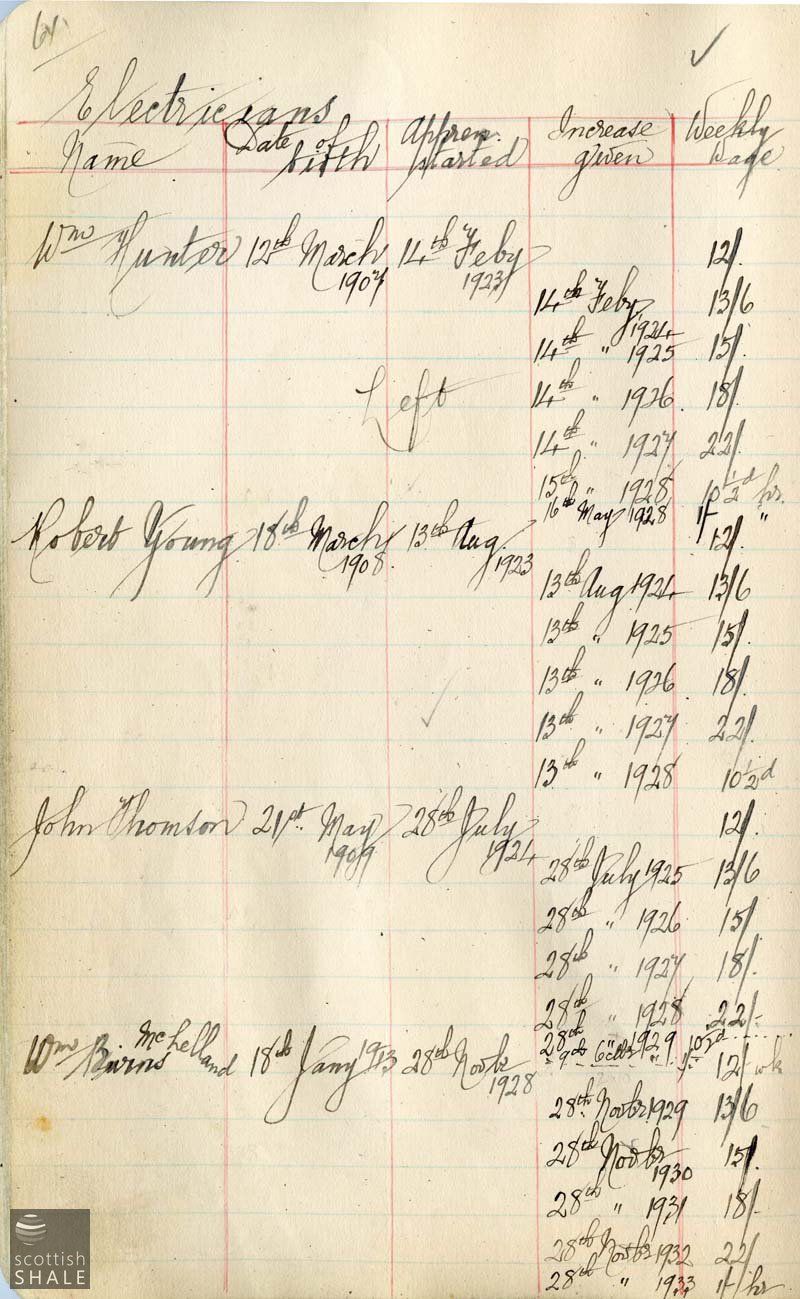 61.
Electricians
Name Date of birth Appren. started Increase given Weekly Wage
Wm Hunter 12th March 1907 14th Feby 1923 12/.
14th Feby 1924 13/6
14th " 1925 15/.
Left 14th " 1926. 18/.
14th " 1927 22/.
15th " 1928 10½d hr.
16th May 1928 1/- "
Robert Young 18th March 1908. 13th Aug. 1923 12/.
13th Aug 1924 13/6
13th " 1925 15/.
13th " 1926 18/.
13th " 1927 22/.
13th " 1928 10½d
John Thomson 21st. May 1909 28th July 1924 12/.
28th July 1925 13/6
28th " 1926 15/.
28th " 1927 18/.
28th " 1928 22/-
28th " 1929 10½d
Wm Burns McLelland 18th Jany 1913 28th Novbr 1928 12/- wk
28th Novbr 1929 13/6
28th Novbr 1930 15/.
28th " 1931 18/-
28th Novbr 1932 22/
28th " 1933 1/- hr
scottish
SHALE